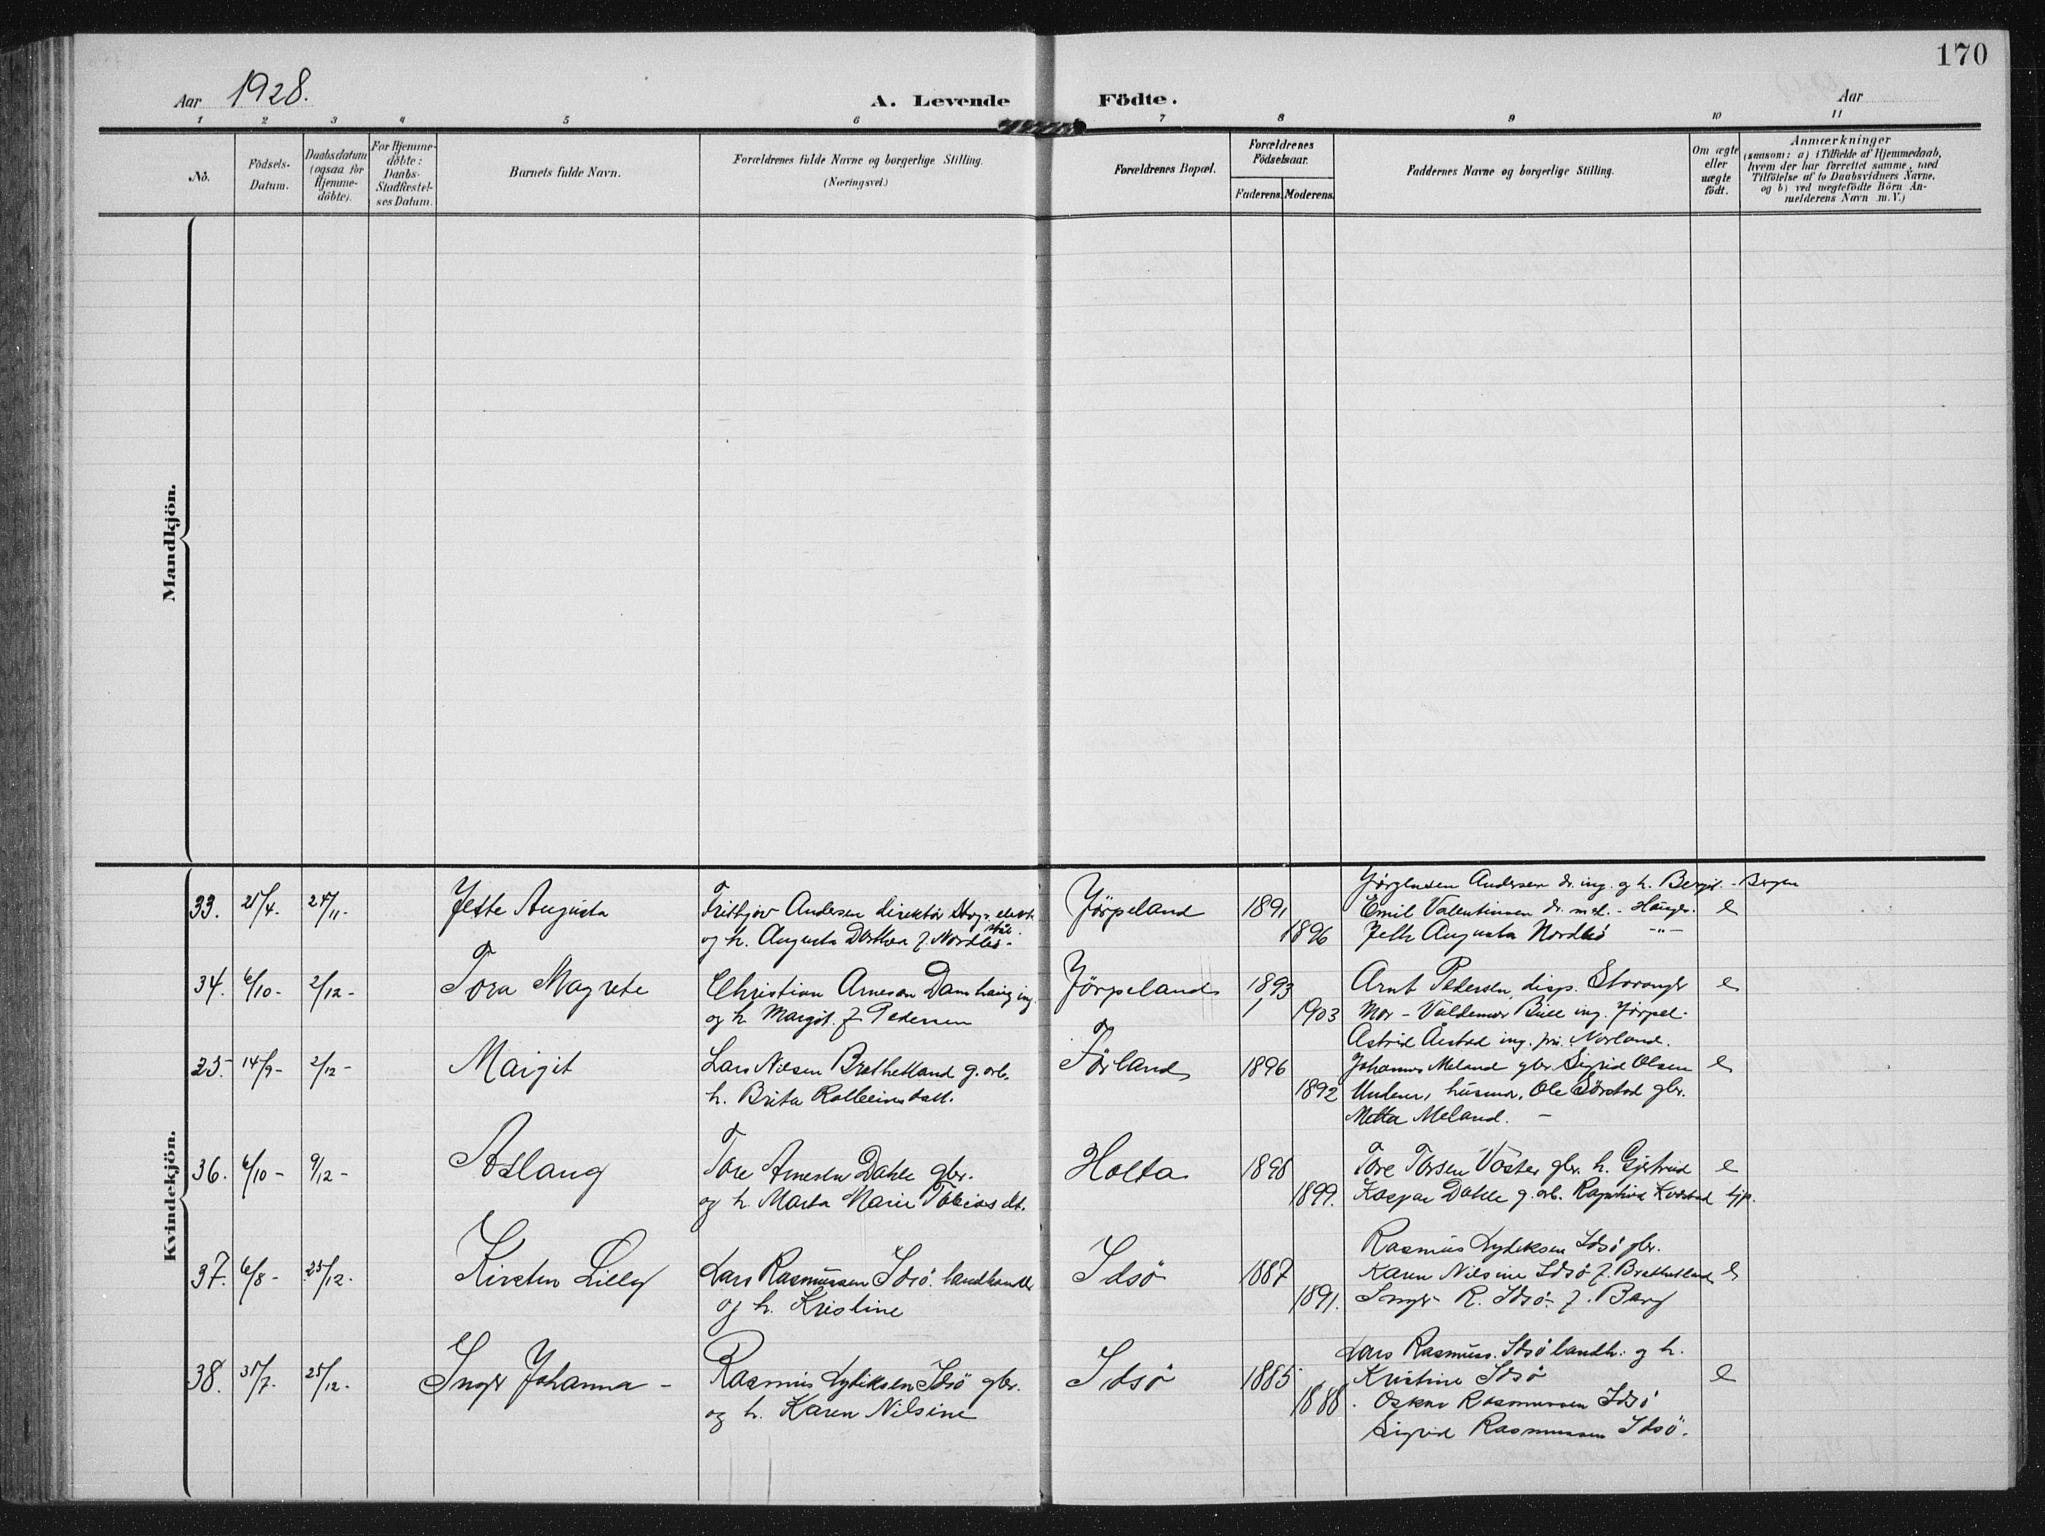 170
Aar 1928.
A. Levende Födte.
Aar
1 2 3 4 5 6 7 8 9 10 11
No.
Födsels-Datum.
Daabsdatum (ogsaa for Hjemme-döbte).
For Hjemme-döbte: Daabs-Stadfæstel-ses Datum.
Barnets fulde Navn.
Forældrenes fulde Navne og borgerlige Stilling.
(Næringsvei.)
Forældrenes Bopæl.
Forældrenes Födselsaar.
Faderens. Moderens.
Faddernes Navne og borgerlige Stilling.
Om ægte eller uægte födt.
Anmærkninger
(saasom: a) i Tilfælde af Hjemmedaab, hvem der har forrettet samme, med Tilföielse af to Daabsvidners Navne, og b) ved uægtefödte Börn An-melderens Navn m. V.)
Mandkjön.
Kvindekjön.
33. 25/4. 24/11- Jette Augusta
Fridtjov Andersen direktør elekt. stål.
og h. Augusta Dorthea f. Nordbø-
Jørpeland 1891 1896
Jørgensen Andersen dr. ing. og h. Bergit - Bergen
Emil Valentinsen dr. med. - Hauges. e
Jette Augusta Nordbø -"-
34. 6/10- 2/12- Tora Magrete
Christian Arneson Damhaug ing.
og h. Margit f. Pedersen
Jørpeland 1893 1903
Arnt Pedersen, disp. Stavanger e
Mor - Valdemar Bull ing. Jørpel.
Astrid Åestad ing. Norland.
25. 14/9- 2/12- Margit
Lars Nilsen Brathetland g. arb.
h. Brita Kolbeinsdatt.
Førland 1896 1892
Johannes Meland gbr. Sigrid Olsen e
husmor, Ole Sørstad gbr.
Metta Meland. -
36. 6/10- 9/12- Aslaug
Tore Arnesen Dahle gbr.
og h. Marta Marie Tobiasdt.
Holta 1898 1899.
Tore Torsen Voster gbr. h. Gjertrud e
Kaspar Dahle g. arb. Ragnhild Kvestad tjp.
37. 6/8- 25/12. Kirsten Lilly
Lars Rasmussen Idsø. landhandl
og h. Kristine
Idsø 1887 1891.
Rasmus Lydiksen Idsø gbr.
Karen Nilsine Idsø f. Brathetland e
Inger R. Idsø- f. Berg
38. 31/7. 25/12- Inger Johanna -
Rasmus Lydiksen Idsø gbr.
og h. Karen Nilsine
Idsø 1885 1888.
Lars Rasmuss. Idsø landh. og h.
Kristine Idsø e
Oskar Rasmussen Idsø
Sigvid Rasmussen Idsø.